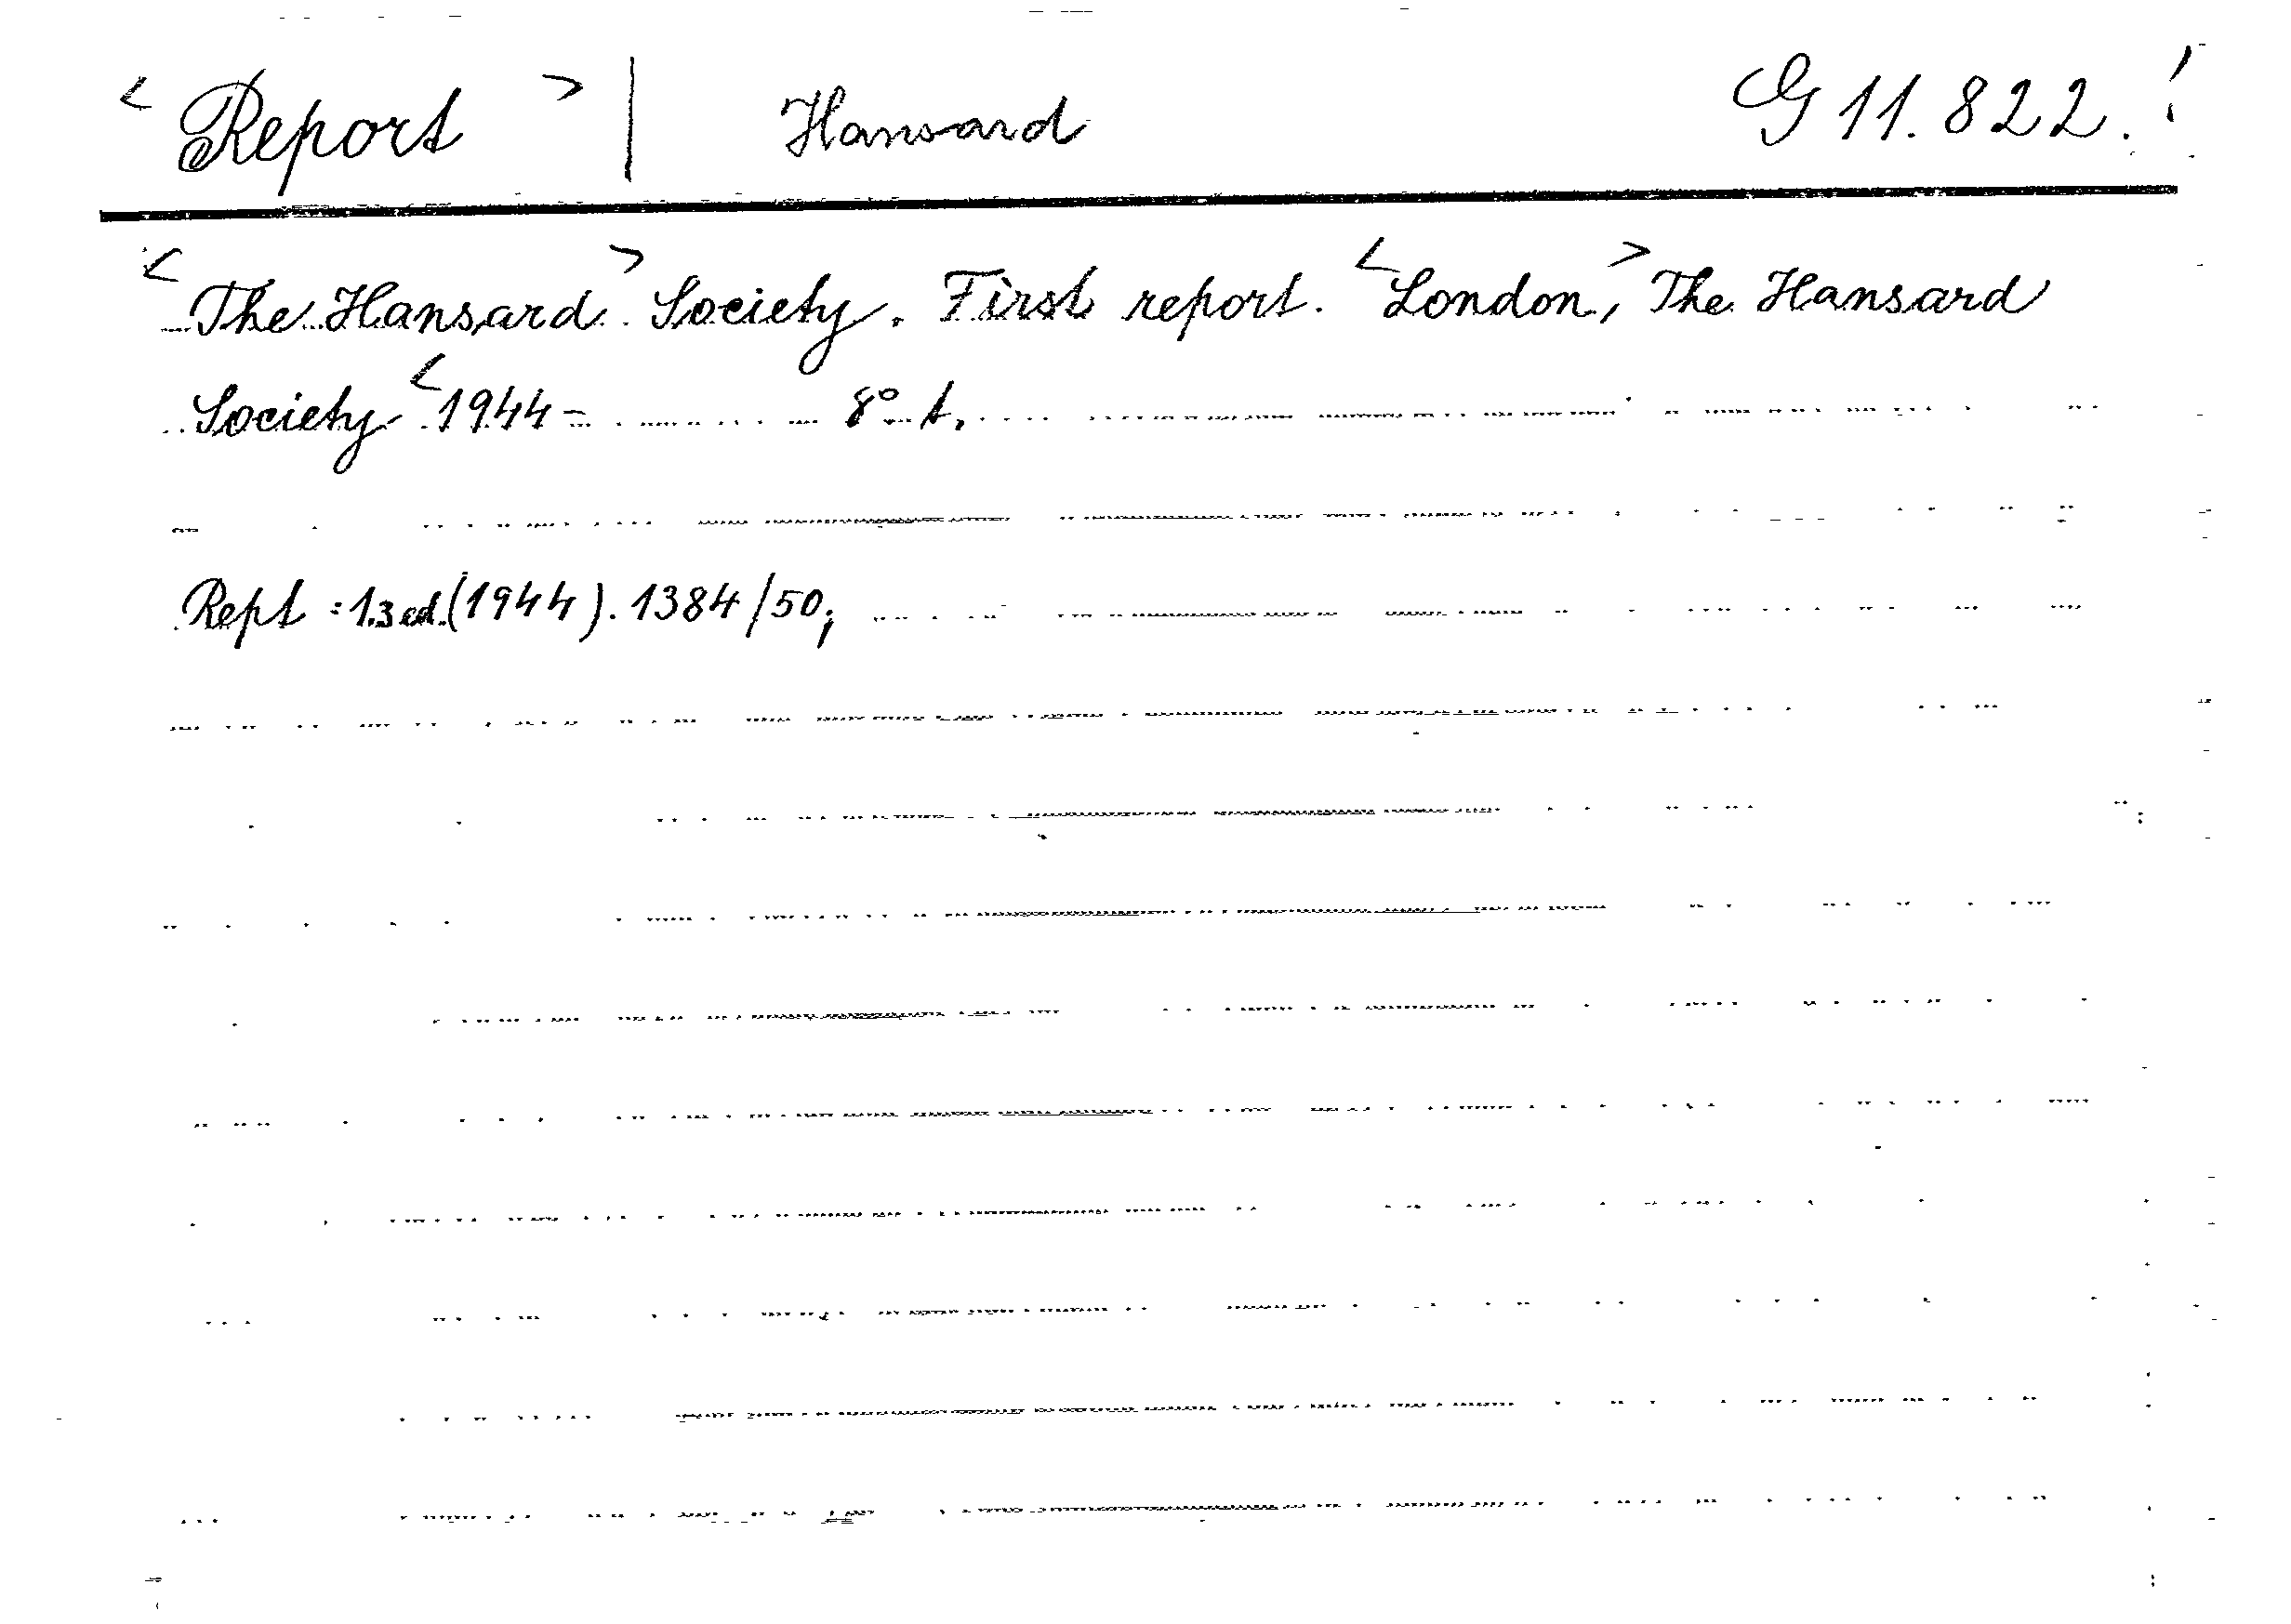 < Report > | Hansard G 11.822.!
<The Hansard> Society. First report. <London,> The Hansard
Society <1944- 8° t.
Rept : 1.3 ed. (1944). 1384/50;